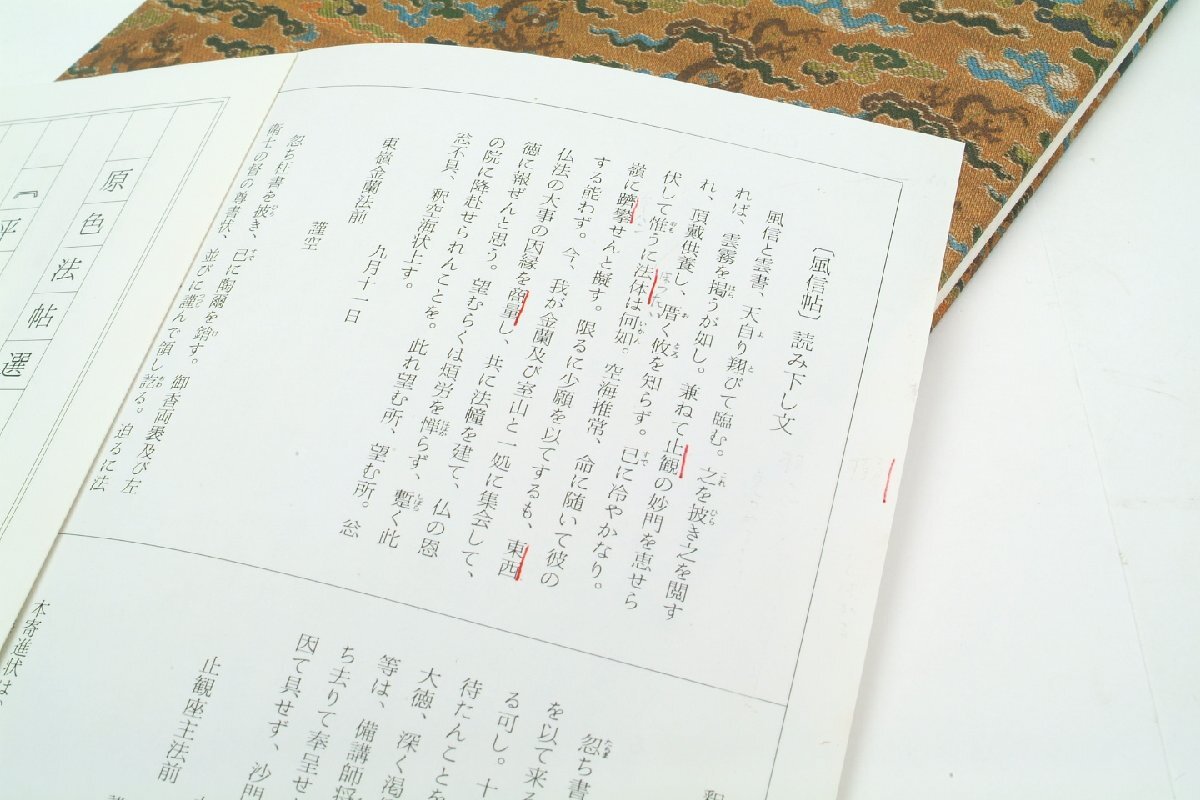 〔風信帖〕読み下し文
風信と雲書、天自り翔びて臨む。之を披き之を閲す
れば、雲霧を掲うが如し。兼ねて止観の妙門を恵せら
れ、頂戴供養し、厝く攸を知らず。已に冷やかなり。
伏して惟うに法体は何如。空海推常、命に随いて彼の
嶺に躋攀せんと擬す。限るに少願を以てするも、東西
する能わず。今、我が金蘭及び室山と一処に集会して、
仏法の大事の因縁を商量し、共に法幢を建て、仏の恩
徳に報せんと思う。望むらくは煩労を憚らず、蹔く此
の院に降赴せられんことを。此れ望む所、望む所。忩
忩不具、釈空海状上す。
九月十一日
東嶺金蘭法前
謹空
忽ち枉書を披き、已に陶爾を銷す。御香両裹及び左
衛士の督の尊書状、並びに謹んで領し訖る。迫るに法
忽ち書
を以て来る
る可し。十
待たんことを
大徳、深く渇
等は、備講師
ち去りて奉呈せ
因て具せず、沙門
止観座主法前
本寄進状は、
原色法帖選
『平